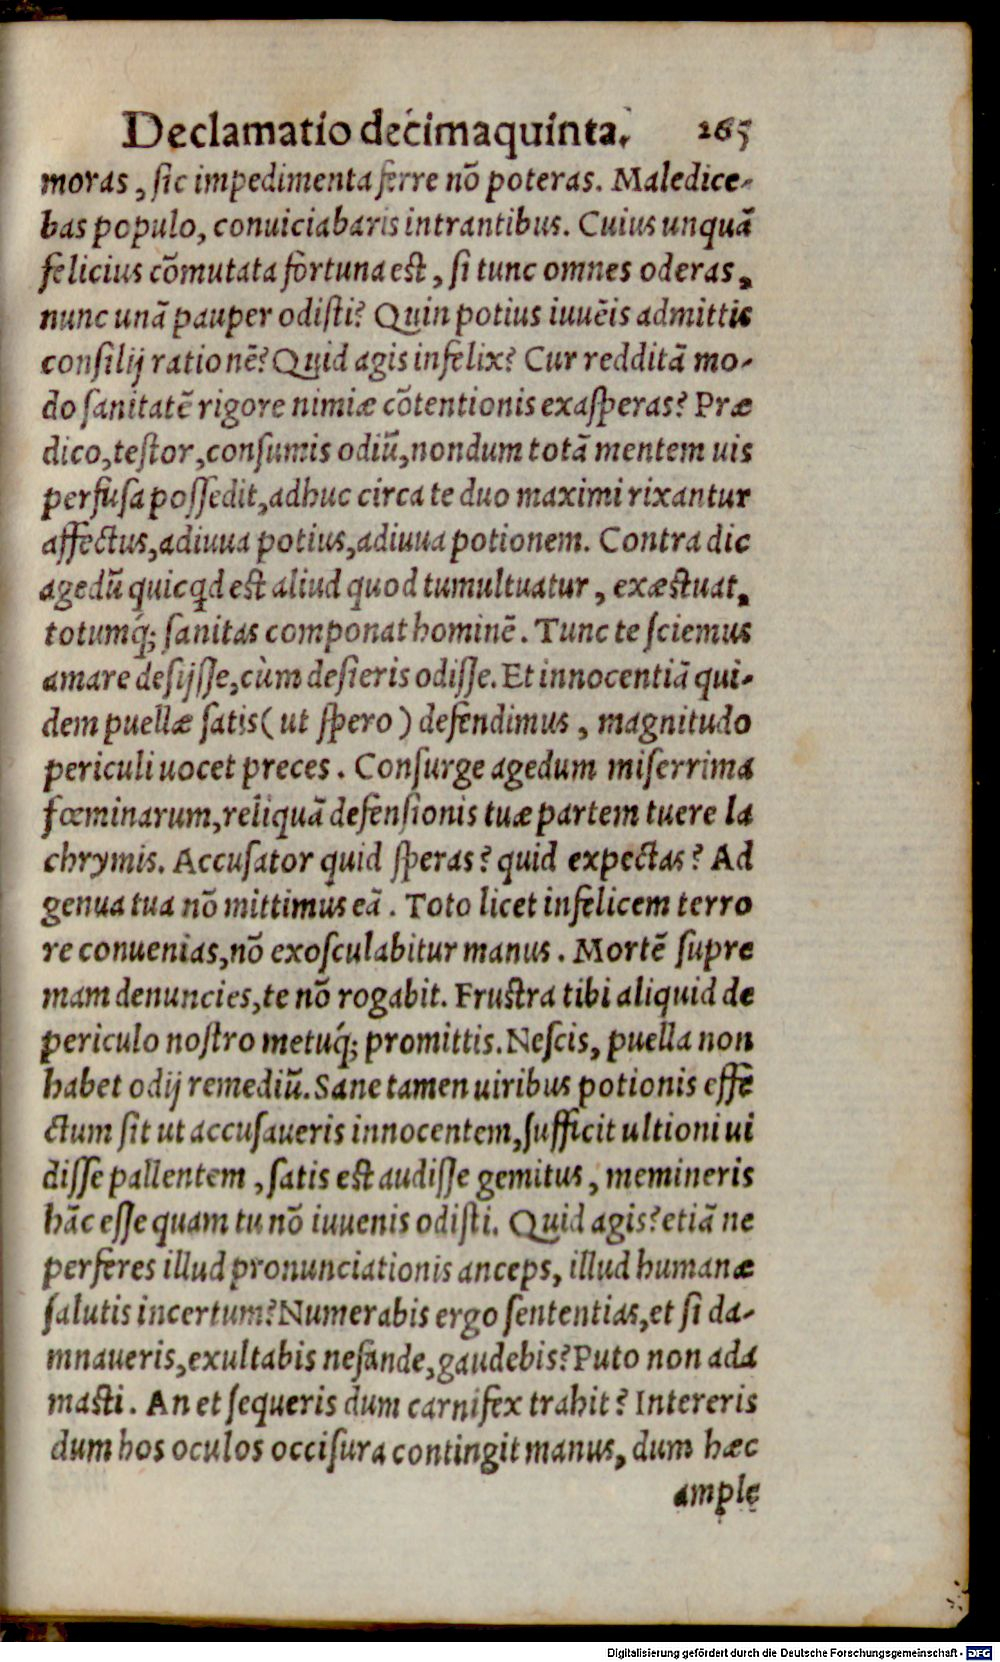 Declamatio decimaquinta. 265
moras, sic impedimenta ferre nõ poteras. Maledice-
bas populo, conuiciabaris intrantibus. Cuius unquã
felicius cõmutata fortuna est, si tunc omnes oderas,
nunc unã pauper odisti? Quin potius iuuẽis admittis
consilij rationẽ? Quid agis infelix? Cur redditã mo-
do sanitatẽ rigore nimiæ cõtentionis exasperas? Præ
dico, testor, consumis odiũ, nondum totã mentem uis
perfusa possedit, adhuc circa te duo maximi rixantur
affectus, adiuua potius, adiuua potionem. Contra dic
agedũ quicqd est aliud quod tumultuatur, exæstuat,
totumq́; sanitas componat hominẽ. Tunc te sciemus
amare desijsse, cùm desieris odisse. Et innocentiã qui-
dem puellæ satis (ut spero) defendimus, magnitudo
periculi uocet preces. Consurge agedum miserrima
fœminarum, reliquã defensionis tuæ partem tuere la
chrymis. Accusator quid speras? quid expectas? Ad
genua tua nõ mittimus eã. Toto licet infelicem terro
re conuenias, nõ exosculabitur manus. Mortẽ supre
mam denuncies, te nõ rogabit. Frustra tibi aliquid de
periculo nostro metuq́; promittis. Nescis, puella non
habet odij remediũ. Sane tamen uiribus potionis effe
ctum sit ut accusaueris innocentem, sufficit ultioni ui
disse pallentem, satis est audisse gemitus, memineris
hãc esse quam tu nõ iuuenis odisti. Quid agis? etiã ne
perferes illud pronunciationis anceps, illud humanæ
salutis incertum? Numerabis ergo sententias, et si da-
mnaueris, exultabis nefande, gaudebis? Puto non ada
masti. An et sequeris dum carnifex trahit? Intereris
dum hos oculos occisura contingit manus, dum hæc
ample
Digitalisierung gefördert durch die Deutsche Forschungsgemeinschaft - DFG